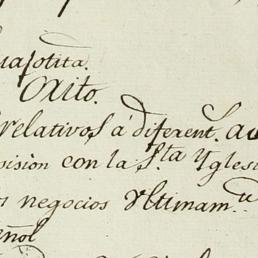 uajotita.
Oxito.
relativos á diferent.s au
sision con la S.ta Yglesi
s negocios Ultimam.
eñol